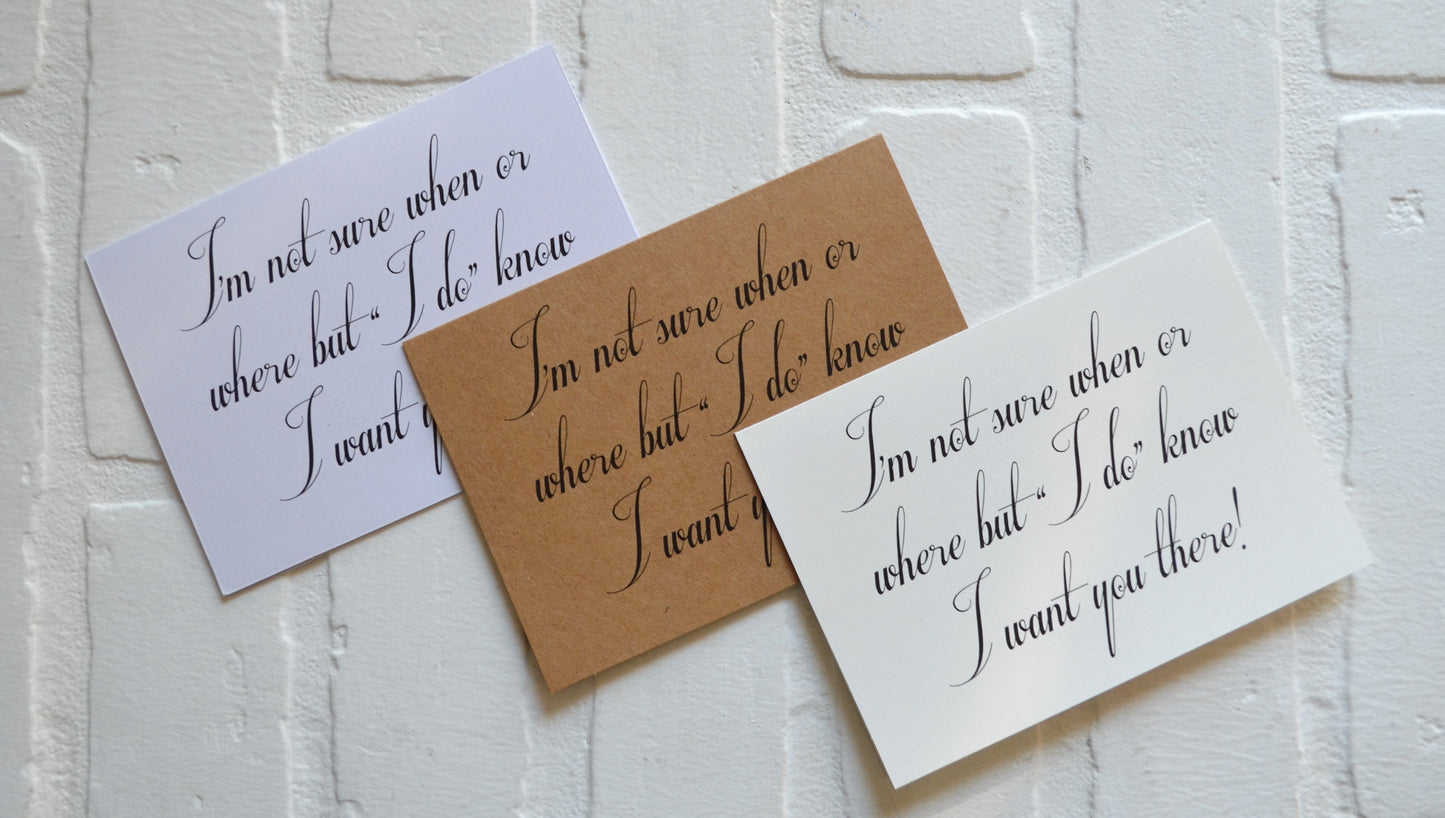 I'm not sure when or
where but “I do” know
I want
I'm not sure when or
where but “I do” know
I want
I'm not sure when or
where but “I do” know
I want you there!